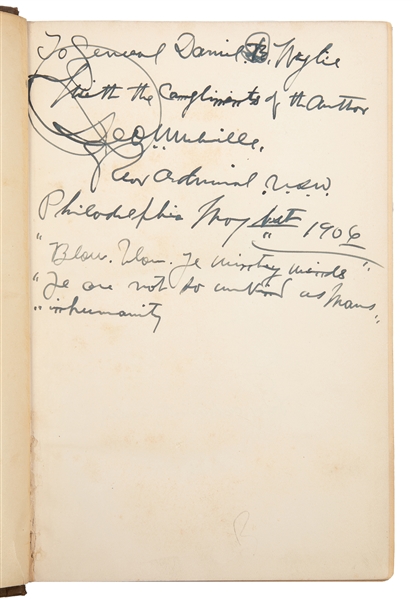 To General Daniel B. Wylie
with the Compliments of the Author
Geo. W. Melville,
Rear Admiral. U.S.N.
Philadelphia May 1906
"Blow. blow. Ye wintry winds"
"Ye are not so unkind as Mans"
"inhumanity